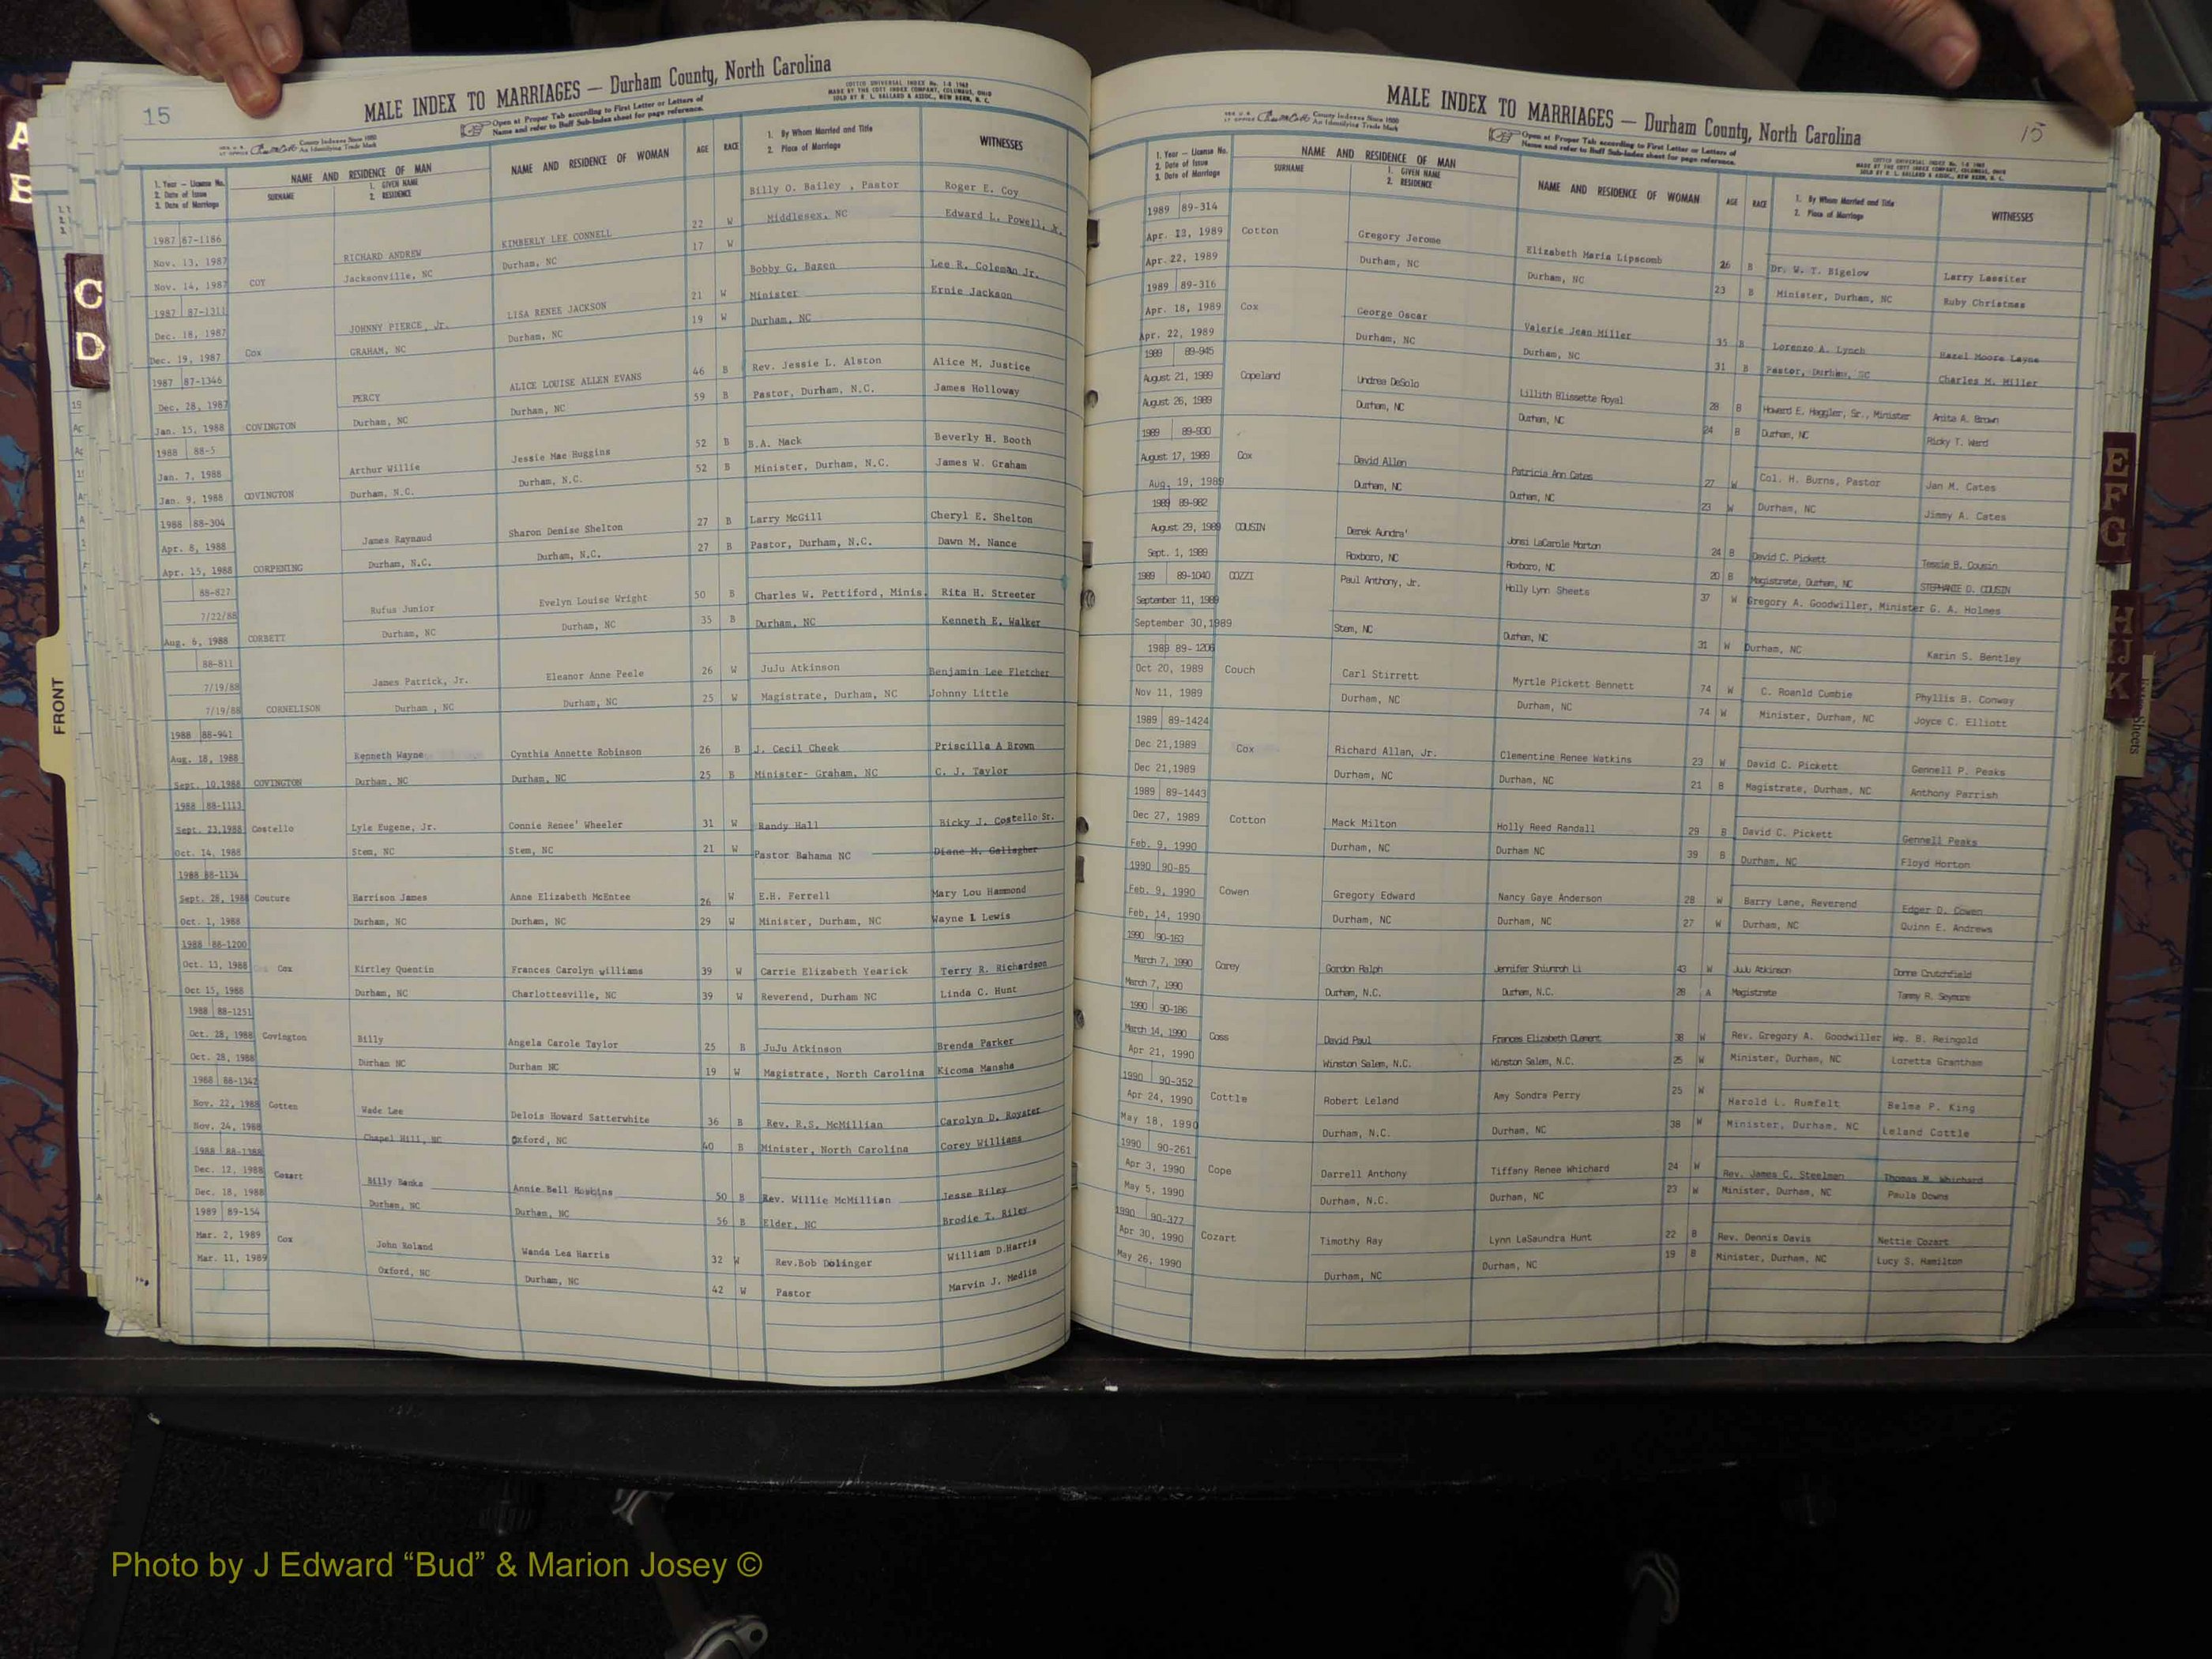 15
MALE INDEX TO MARRIAGES — Durham County, North Carolina
Open at Proper Tab according to First Letter or Letters of
Name and refer to Buff Sub-Index sheet for page reference.
COTTCO UNIVERSAL INDEX No. 1-S 1963
MADE BY THE COTT INDEX COMPANY, COLUMBUS, OHIO
SOLD BY R. L. BALLARD & ASSOC., NEW BERN, N. C.
County Indexes Since 1880
An Identifying Trade Mark
1. Year — License No.
2. Date of Issue
3. Date of Marriage
NAME AND RESIDENCE OF MAN
SURNAME
1. GIVEN NAME
2. RESIDENCE
NAME AND RESIDENCE OF WOMAN
AGE
RACE
1. By Whom Married and Title
2. Place of Marriage
WITNESSES
1987 87-1186 RICHARD ANDREW KIMBERLY LEE CONNELL 22 W Billy O. Bailey , Pastor Roger E. Coy
Nov. 13, 1987 Jacksonville, NC Durham, NC 17 W Middlesex, NC Edward L. Powell,
Nov. 14, 1987 COY
1987 87-1311 JOHNNY PIERCE, Jr. LISA RENEE JACKSON 21 W Bobby G. Bazen Lee R. Coleman Jr.
Dec. 18, 1987 GRAHAM, NC Durham, NC 19 W Minister Ernie Jackson
Dec. 19, 1987 Cox Durham, NC
1987 87-1346 PERCY ALICE LOUISE ALLEN EVANS 46 B Rev. Jessie L. Alston Alice M. Justice
Dec. 28, 1987 Durham, NC Durham, NC 59 B Pastor, Durham, N.C. James Holloway
Jan. 15, 1988 COVINGTON
1988 88-5 Arthur Willie Jessie Mae Huggins 52 B B.A. Mack Beverly H. Booth
Jan. 7, 1988 Durham, N.C. Durham, N.C. 52 B Minister, Durham, N.C. James W. Graham
Jan. 9, 1988 COVINGTON
1988 88-304 James Raynaud Sharon Denise Shelton 27 B Larry McGill Cheryl E. Shelton
Apr. 8, 1988 Durham, N.C. Durham, N.C. 27 B Pastor, Durham, N.C. Dawn M. Nance
Apr. 15, 1988 CORPENING
88-827 Rufus Junior Evelyn Louise Wright 50 B Charles W. Pettiford, Minis. Rita H. Streeter
7/22/88 Durham, NC Durham, NC 35 B Durham, NC Kenneth E. Walker
Aug. 6, 1988 CORBETT
88-811 James Patrick, Jr. Eleanor Anne Peele 26 W JuJu Atkinson Benjamin Lee Fletcher
7/19/88 Durham , NC Durham, NC 25 W Magistrate, Durham, NC Johnny Little
7/19/88 CORNELISON
1988 88-941 Kenneth Wayne Cynthia Annette Robinson 26 B J. Cecil Cheek Priscilla A Brown
Aug. 18, 1988 Durham, NC Durham, NC 25 B Minister- Graham, NC C. J. Taylor
Sept. 10,1988 COVINGTON
1988 88-1113
Sept. 23,1988 Costello Lyle Eugene, Jr. Connie Renee' Wheeler 31 W Randy Hall Ricky J. Costello Sr.
Oct. 14, 1988 Stem, NC Stem, NC 21 W Pastor Bahama NC Diane M. Gallagher
1988 88-1134
Sept. 28, 1988 Couture Harrison James Anne Elizabeth McEntee 26 W E.H. Ferrell Mary Lou Hammond
Oct. 1, 1988 Durham, NC Durham, NC 29 W Minister, Durham, NC Wayne I Lewis
1988 88-1200
Oct. 13, 1988 Cox Kirtley Quentin Frances Carolyn williams 39 W Carrie Elizabeth Yearick Terry R. Richardson
Oct 15, 1988 Durham, NC Charlottesville, NC 39 W Reverend, Durham NC Linda C. Hunt
1988 88-1251
Oct. 28, 1988 Covington Billy Angela Carole Taylor 25 B JuJu Atkinson Brenda Parker
Oct. 28, 1988 Durham NC Durham NC 19 W Magistrate, North Carolina Kicoma Mansha
1988 88-1342
Nov. 22, 1988 Cotten Wade Lee Delois Howard Satterwhite 36 B Rev. R.S. McMillian Carolyn D. Royster
Nov. 24, 1988 Chapel Hill, NC Oxford, NC 40 B Minister, North Carolina Corey Williams
1988 88-1388
Dec. 12, 1988 Cozart Billy Banks Annie Bell Hoskins 50 B Rev. Willie McMillian Jesse Riley
Dec. 18, 1988 Durham, NC Durham, NC 56 B Elder, NC Brodie T. Riley
1989 89-154
Mar. 2, 1989 Cox John Roland Wanda Lea Harris 32 W Rev.Bob Dolinger William D.Harris
Mar. 11, 1989 Oxford, NC Durham, NC 42 W Pastor Marvin J. Medlin
MALE INDEX TO MARRIAGES — Durham County, North Carolina
15
Open at Proper Tab according to First Letter or Letters of
Name and refer to Buff Sub-Index sheet for page reference.
COTTCO UNIVERSAL INDEX No. 1-S 1963
MADE BY THE COTT INDEX COMPANY, COLUMBUS, OHIO
SOLD BY R. L. BALLARD & ASSOC., NEW BERN, N. C.
County Indexes Since 1880
An Identifying Trade Mark
1. Year — License No.
2. Date of Issue
3. Date of Marriage
NAME AND RESIDENCE OF MAN
SURNAME
1. GIVEN NAME
2. RESIDENCE
NAME AND RESIDENCE OF WOMAN
AGE
RACE
1. By Whom Married and Title
2. Place of Marriage
WITNESSES
1989 89-314
Apr. 13, 1989 Cotton Gregory Jerome Elizabeth Maria Lipscomb 26 B Dr. W. T. Bigelow Larry Lassiter
Apr. 22, 1989 Durham, NC Durham, NC 23 B Minister, Durham, NC Ruby Christmas
1989 89-316
Apr. 18, 1989 Cox George Oscar Valerie Jean Miller 35 B Lorenzo A. Lynch Hazel Moore Layne
Apr. 22, 1989 Durham, NC Durham, NC 31 B Pastor, Durham, NC Charles M. Miller
1989 89-945
August 21, 1989 Copeland Undrea DeSolo Lillith Blissette Royal 28 B Howard E. Haggler, Sr., Minister Anita A. Brown
August 26, 1989 Durham, NC Durham, NC 24 B Durham, NC Ricky T. Ward
1989 89-930
August 17, 1989 Cox David Allen Patricia Ann Cates 27 W Col. H. Burns, Pastor Jan M. Cates
Aug. 19, 1989 Durham, NC Durham, NC 23 W Durham, NC Jimmy A. Cates
1989 89-982
August 29, 1989 COUSIN Derek Aundra' Jonsi LaCarole Morton 24 B David C. Pickett Tessie B. Cousin
Sept. 1, 1989 Roxboro, NC Roxboro, NC 20 B Magistrate, Durham, NC STEPHANIE D. COUSIN
1989 89-1040 COZZI Paul Anthony, Jr. Holly Lynn Sheets 37 W Gregory A. Goodwiller, Minister G. A. Holmes
September 11, 1989
September 30,1989 Stem, NC Durham, NC 31 W Durham, NC Karin S. Bentley
1989 89-1206
Oct 20, 1989 Couch Carl Stirrett Myrtle Pickett Bennett 74 W C. Roanld Cumbie Phyllis B. Conway
Nov 11, 1989 Durham, NC Durham, NC 74 W Minister, Durham, NC Joyce C. Elliott
1989 89-1424
Dec 21,1989 Cox Richard Allan, Jr. Clementine Renee Watkins 23 W David C. Pickett Gennell P. Peaks
Dec 21,1989 Durham, NC Durham, NC 21 B Magistrate, Durham, NC Anthony Parrish
1989 89-1443
Dec 27, 1989 Cotton Mack Milton Holly Reed Randall 29 B David C. Pickett Gennell Peaks
Feb. 9, 1990 Durham, NC Durham NC 39 B Durham, NC Floyd Horton
1990 90-85
Feb. 9, 1990 Cowen Gregory Edward Nancy Gaye Anderson 28 W Barry Lane, Reverend Edger D. Cowen
Feb, 14, 1990 Durham, NC Durham, NC 27 W Durham, NC Quinn E. Andrews
1990 90-163
March 7, 1990 Corey Gordon Ralph Jennifer Shiunroh Li 43 W JuJu Atkinson Donna Crutchfield
March 7, 1990 Durham, N.C. Durham, N.C. 28 A Magistrate Tammy R. Seymore
1990 90-186
March 14, 1990 Coss David Paul Frances Elizabeth Clement 38 W Rev. Gregory A. Goodwiller Wm. B. Reingold
Apr 21, 1990 Winston Salem, N.C. Winston Salem, N.C. 25 W Minister, Durham, NC Loretta Grantham
1990 90-352
Apr 24, 1990 Cottle Robert Leland Amy Sondra Perry 25 W Harold L. Rumfelt Belma P. King
May 18, 1990 Durham, N.C. Durham, NC 38 W Minister, Durham, NC Leland Cottle
1990 90-261
Apr 3, 1990 Cope Darrell Anthony Tiffany Renee Whichard 24 W Rev. James C. Steelman Thomas M. Whichard
May 5, 1990 Durham, N.C. Durham, NC 23 W Minister, Durham, NC Paula Downs
1990 90-377
Apr 30, 1990 Cozart Timothy Ray Lynn LaSaundra Hunt 22 B Rev. Dennis Davis Nettie Cozart
May 26, 1990 Durham, NC Durham, NC 19 B Minister, Durham, NC Lucy S. Hamilton
A
C
D
FRONT
E
F
G
H
I J
K
Photo by J Edward “Bud” & Marion Josey ©